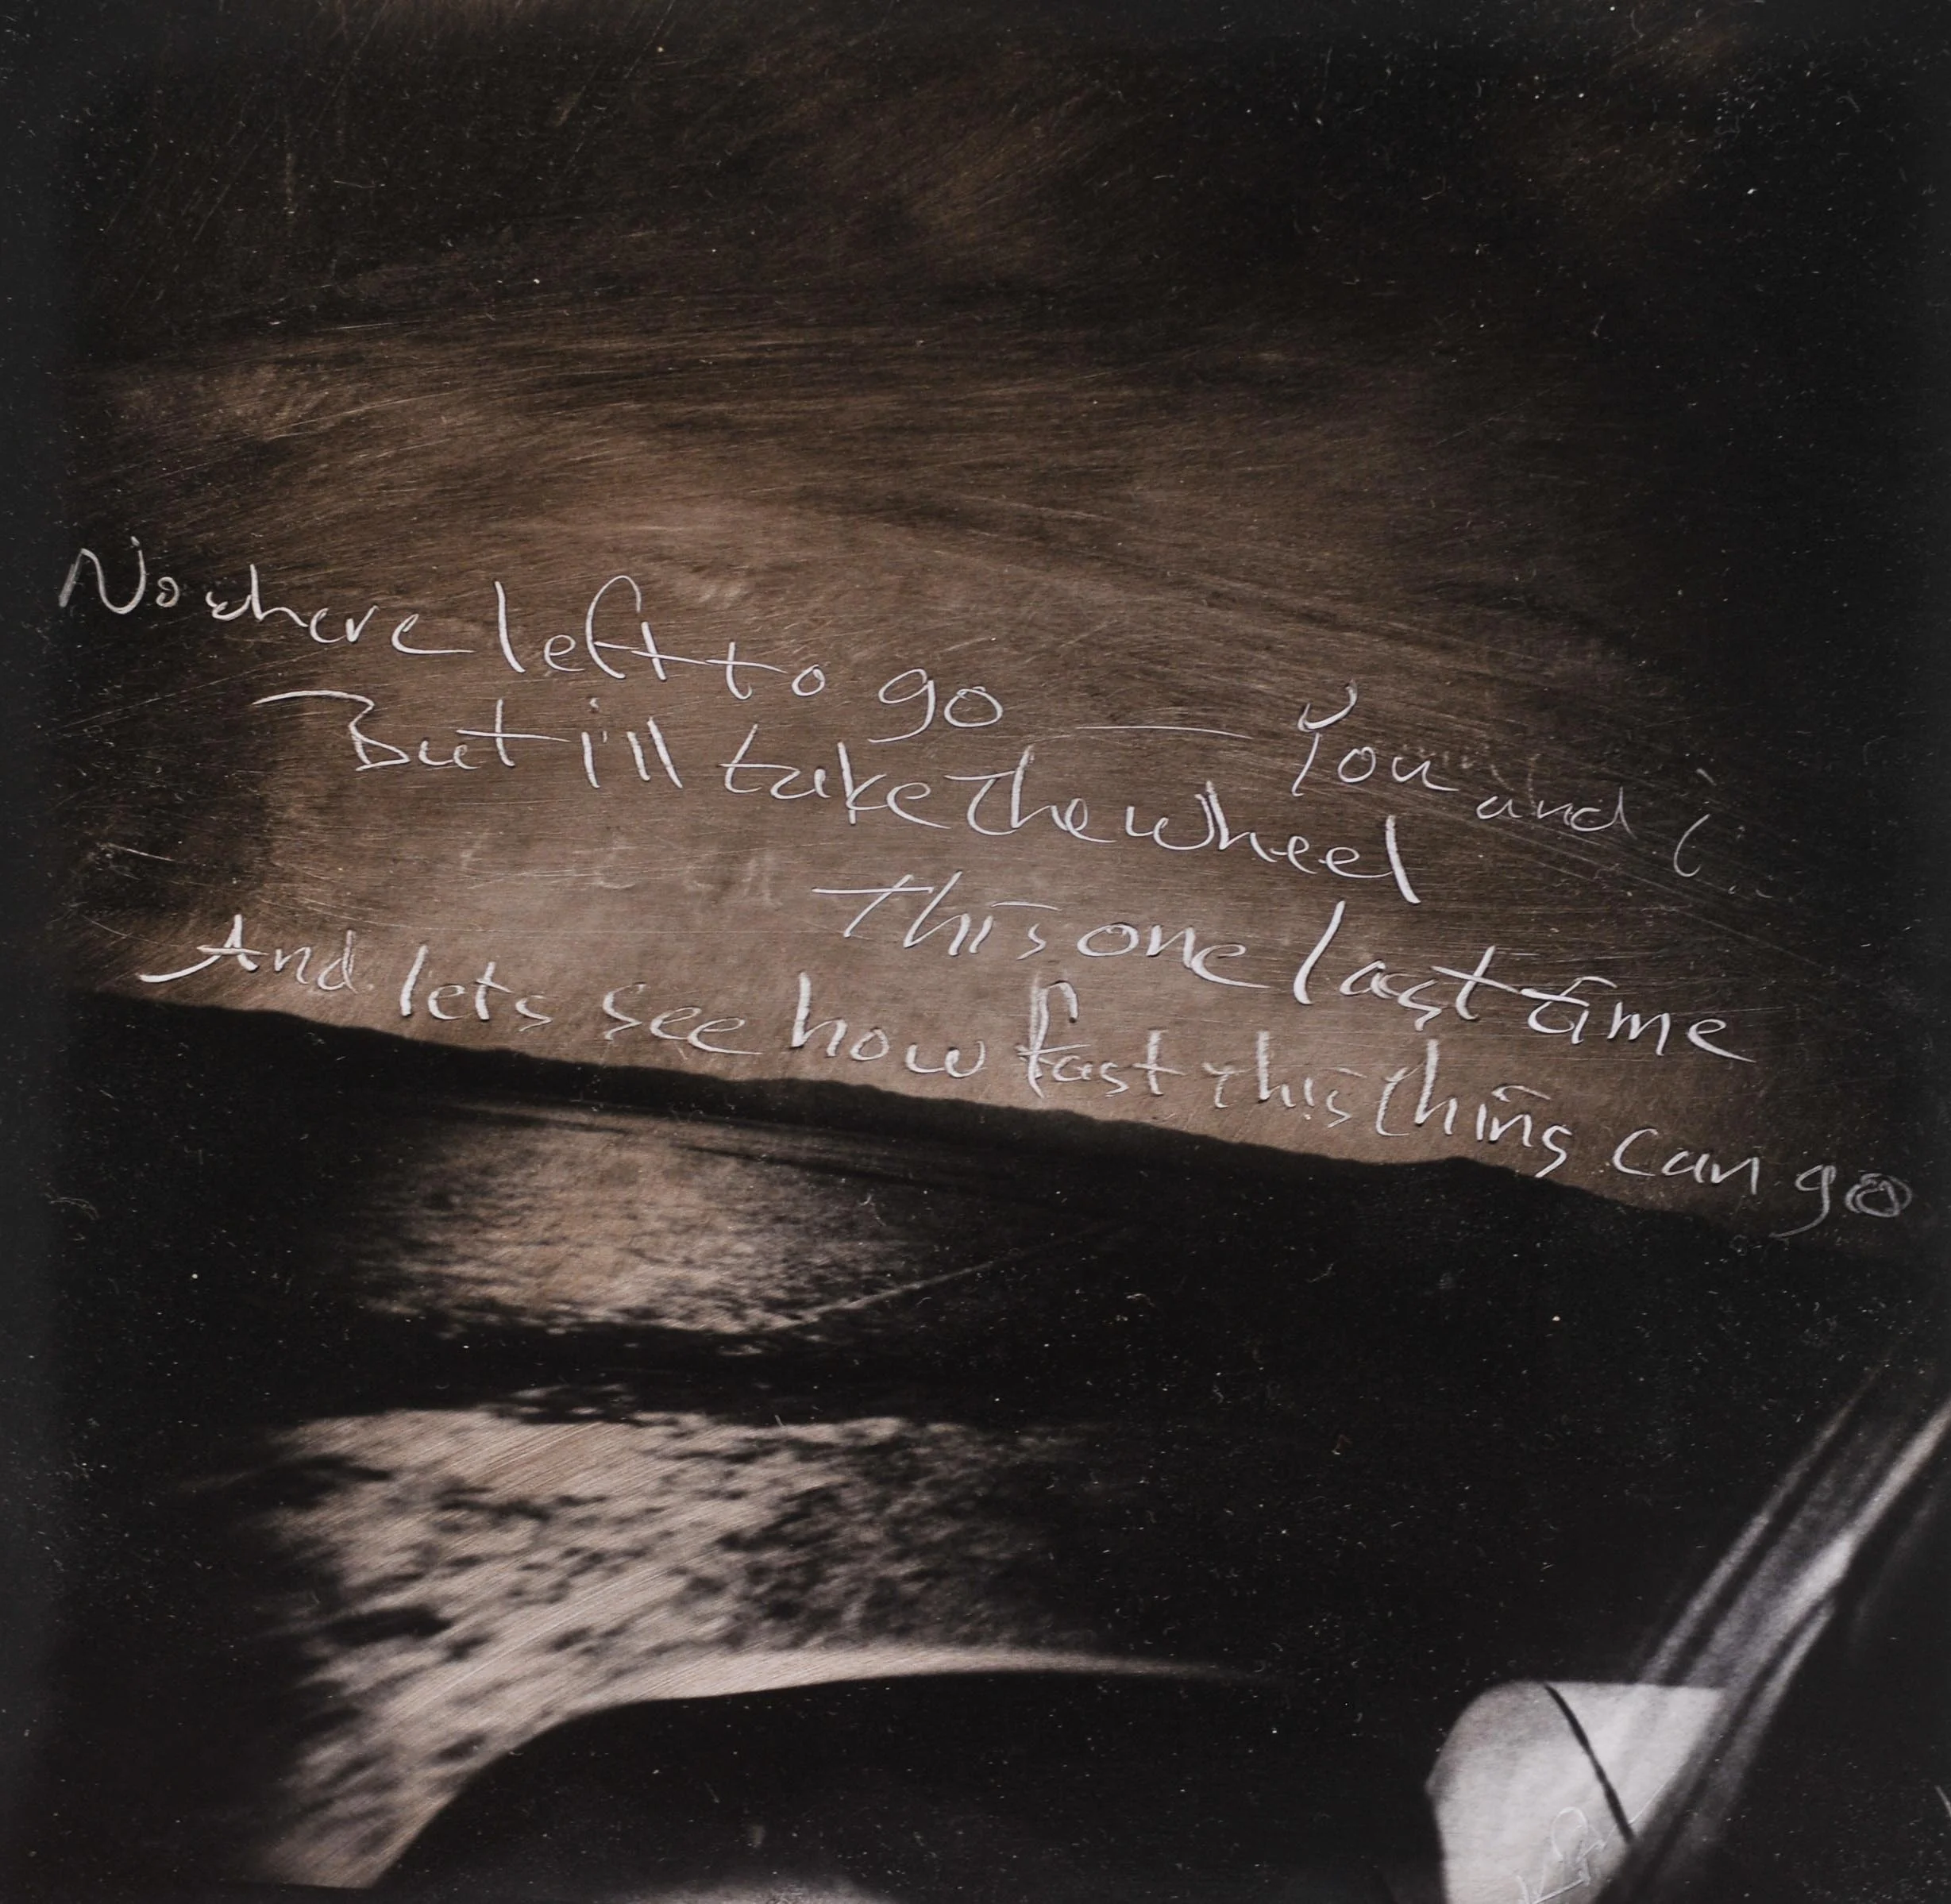 Nowhere left to go — You and i..
But i'll take the wheel
This one last time
And lets see how fast this thing can go